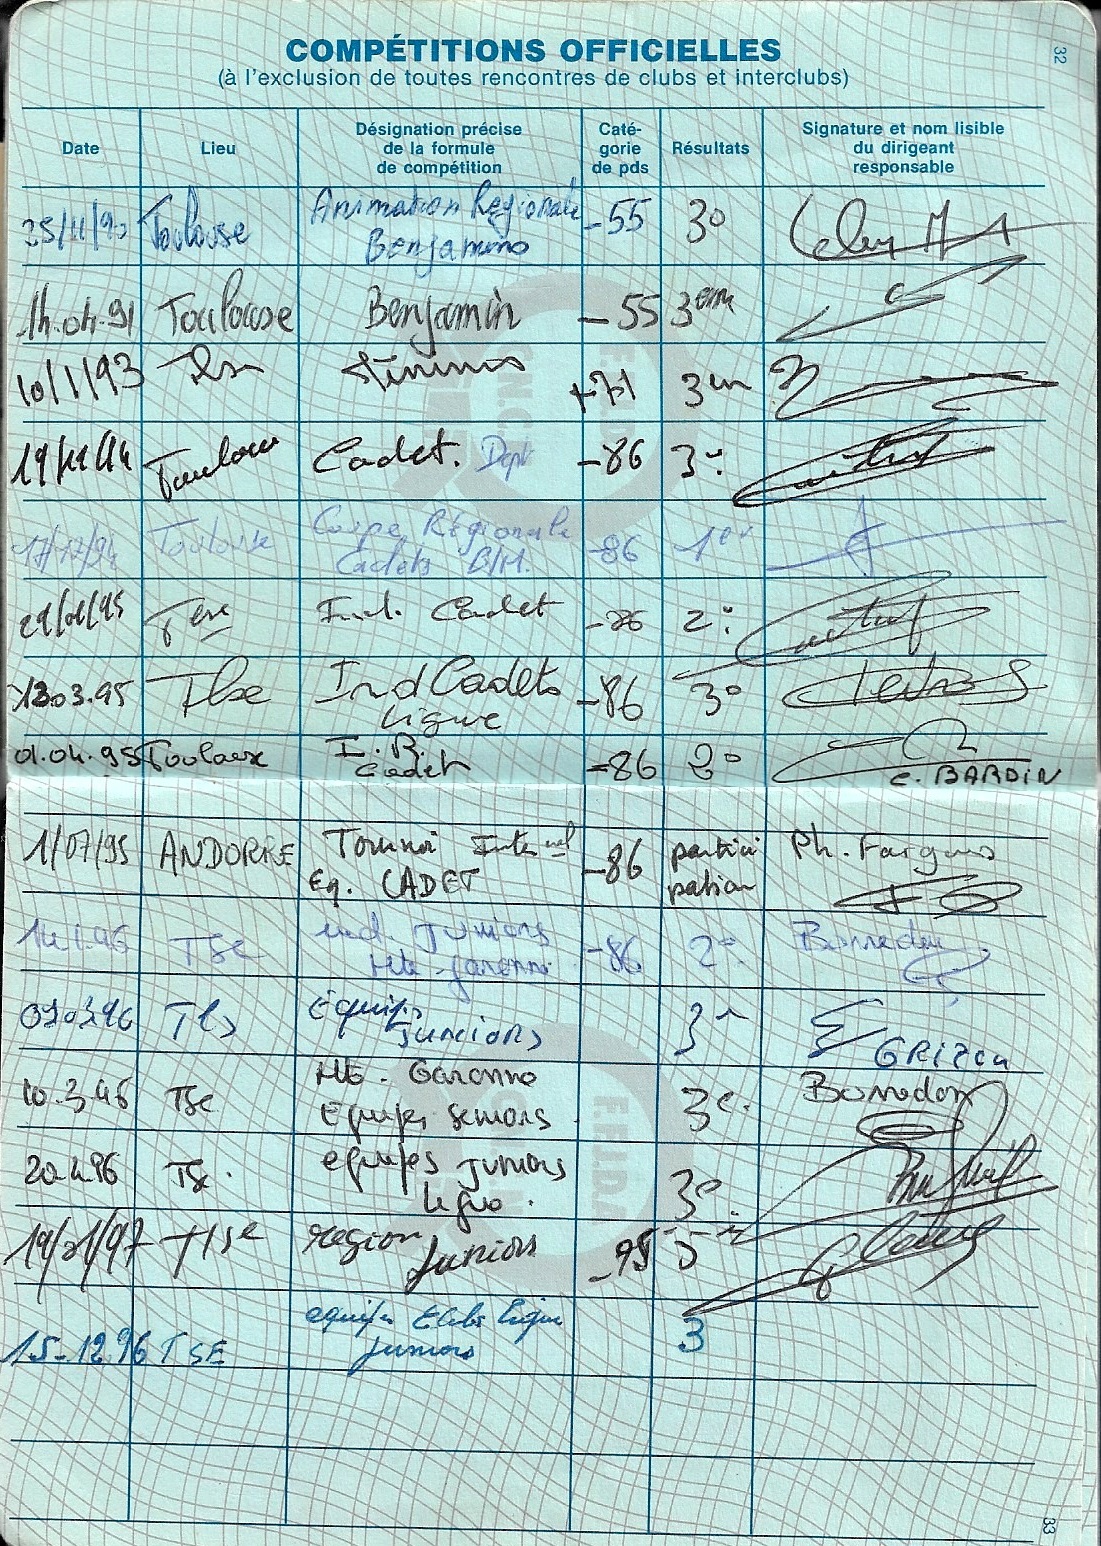 COMPÉTITIONS OFFICIELLES
32
(à l'exclusion de toutes rencontres de clubs et interclubs)
Date Lieu Désignation précise de la formule de compétition Caté-gorie de pds Résultats Signature et nom lisible du dirigeant responsable
25/11/90 Toulouse Animation Régionale Benjamins -55 3o
14.04.91 Toulouse Benjamin -55 3em
10/1/93 Tlse Minimes +71 3em
19/11/94 Toulouse Cadet. Dept -86 3e
17/12/94 Toulouse Coupe Régionale Cadets B/M. -86 1er
29/01/95 Tlse Ind. Cadet -86 2e
13.03.95 Tlse Ind Cadets Ligue -86 3o
01.04.95 Toulouse I.R. Cadet -86 2o C. BARDIN
1/07/95 ANDORRE Tournoi Internal Eq. CADET -86 partici pation Ph. Fargues
14.1.96 TSe ind. Juniors Hte-garonne -86 2e Borredon
09.03.96 Tls Equipes Juniors 3e
10.3.96 TSe Hte. Garonne Equipes seniors 3e. Borredon
20.4.96 TSe. equipes juniors ligue. 3e
19/01/97 Tlse region Juniors -95 5
15-12.96 TSE equipes Clubs ligue juniors 3
F.F.J.D.A.
33